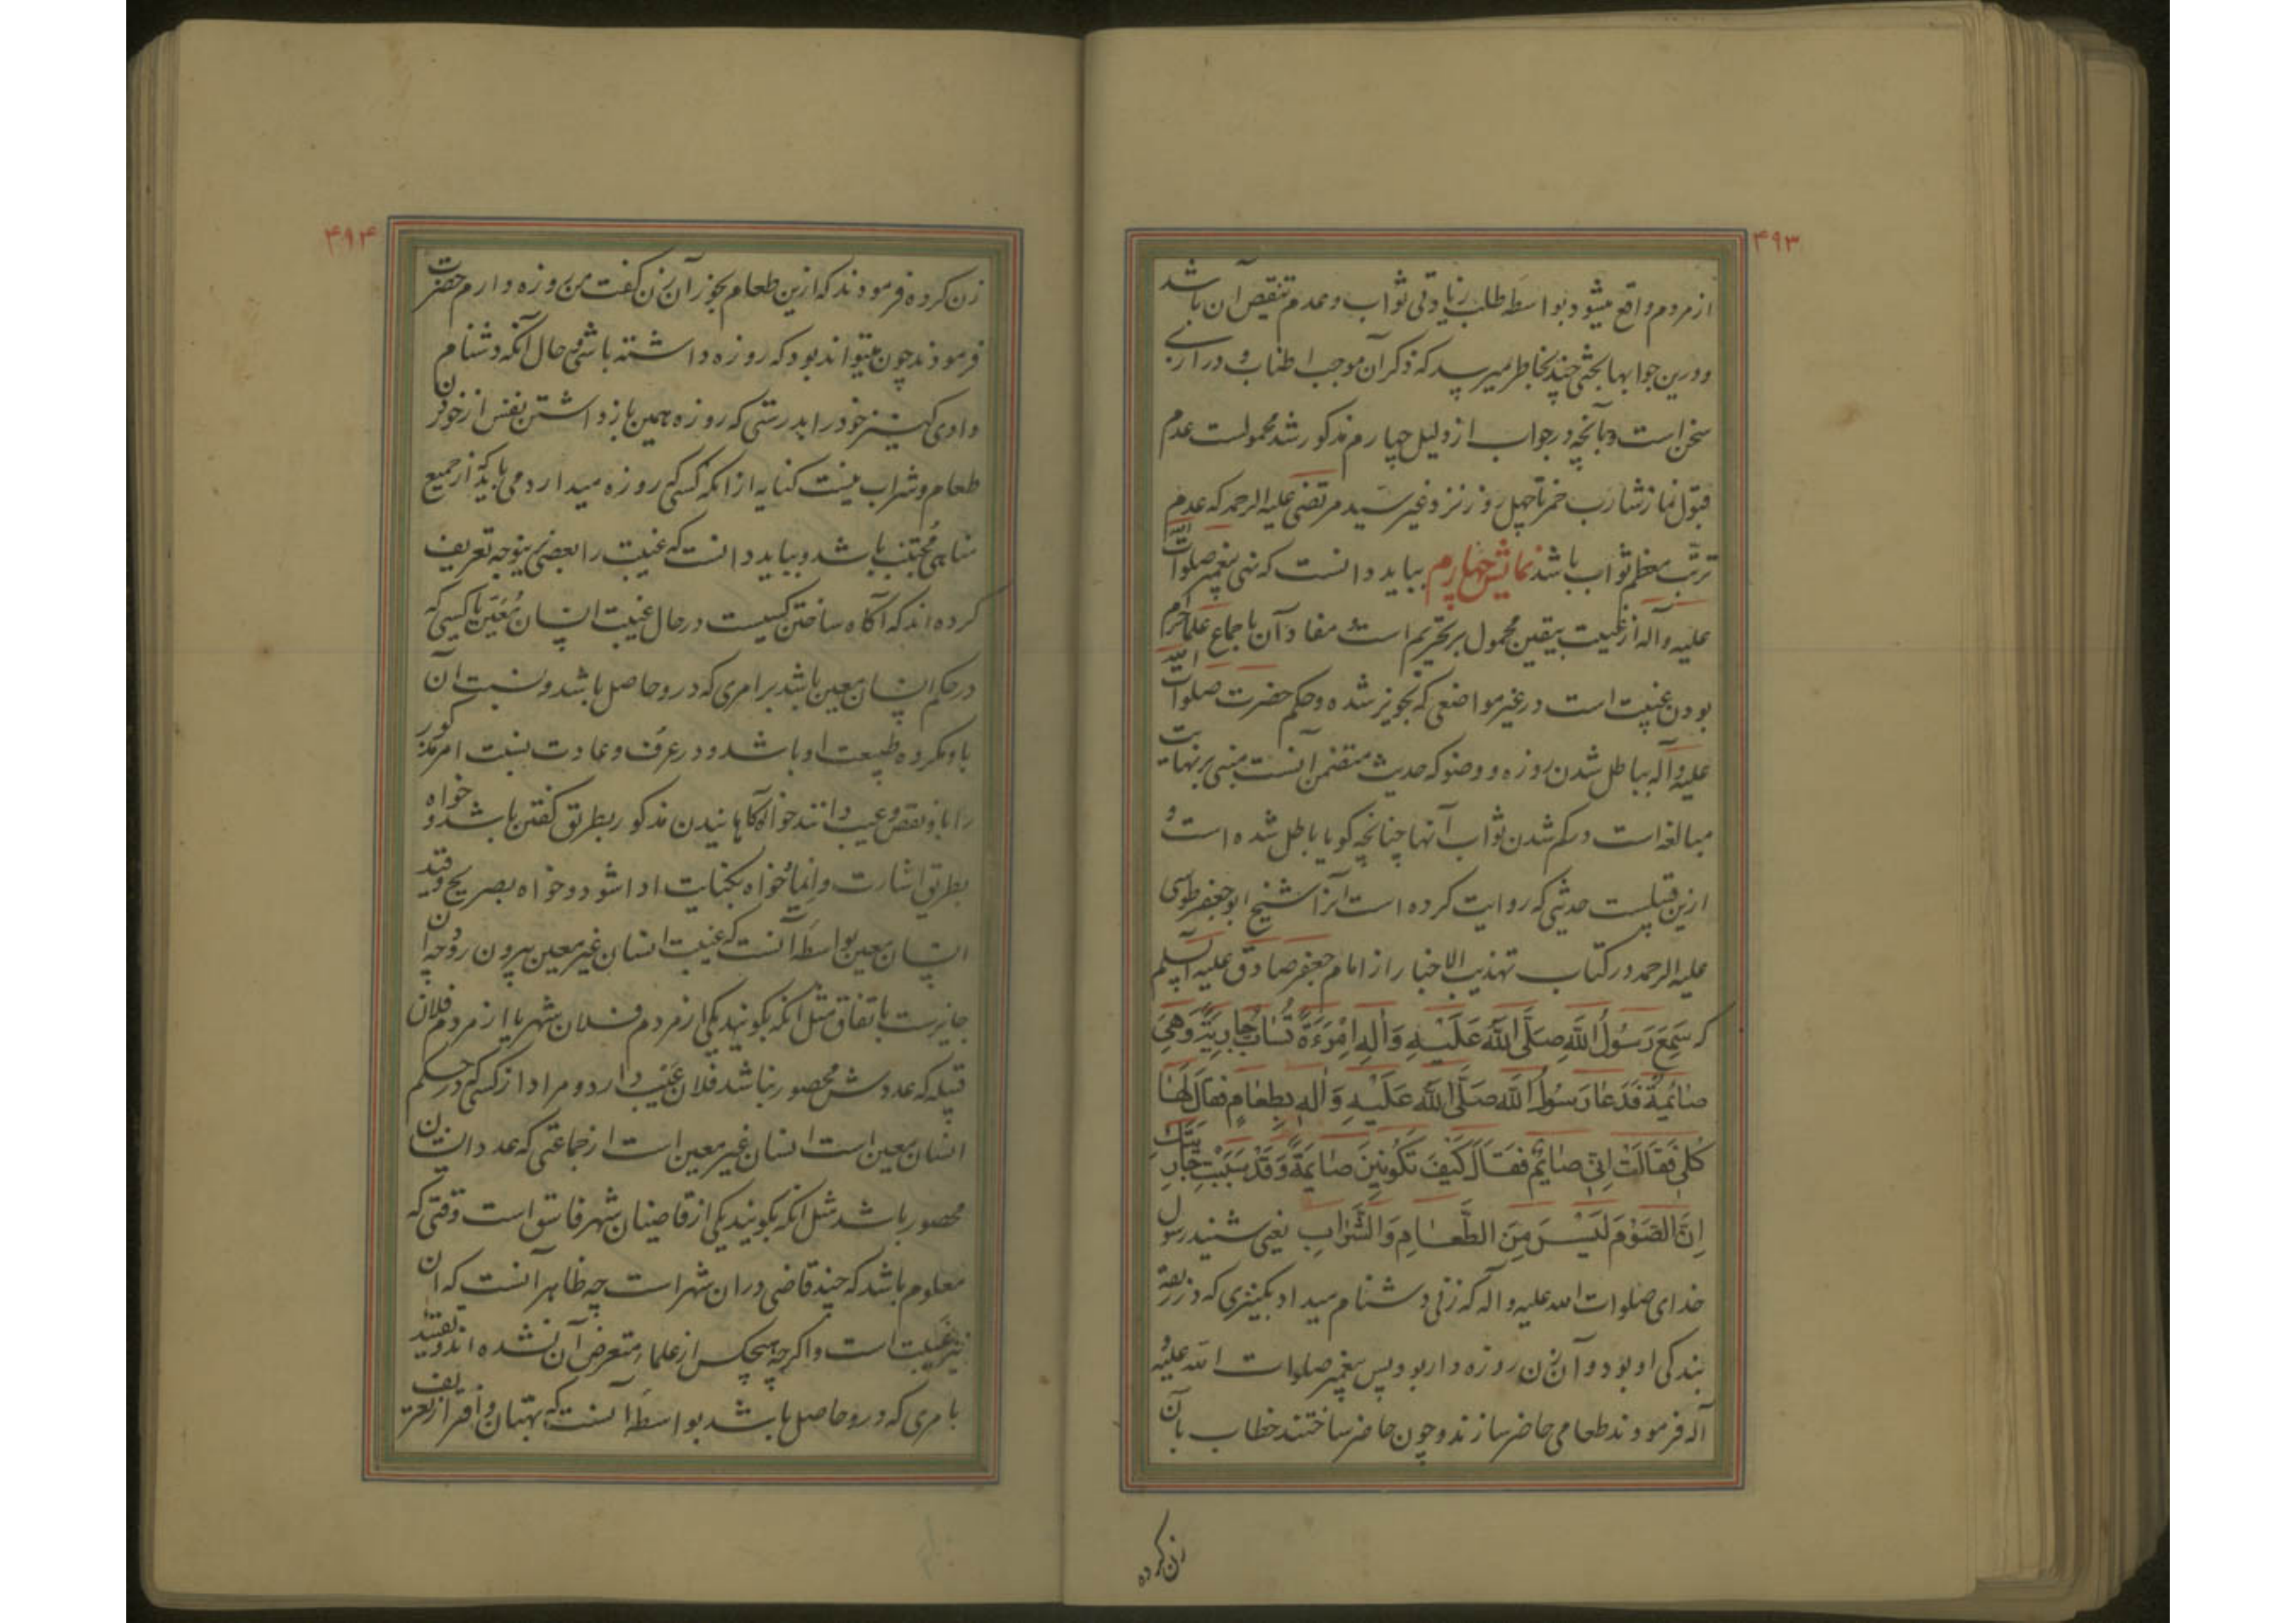 ۴۹۳
از مردم واقع میشود بواسطه طلب زیادتی ثواب وعدم تنقیص آن باشد
ودرین جوابها بحثی چند بخاطر میرسد که ذکر آن موجب اطناب و درازی
سخن است وبآنچه در جواب از دلیل چهارم مذکور شد محمولست عدم
قبول نماز شارب خمر تا چهل روز نزد غیر سید مرتضی علیه الرحمه که عدم
ترتب معظم ثواب باشد نمایش چهارم بباید دانست که نهی پیغمبر صلوات الله
علیه وآله از غیبت بیقین محمول بر تحریم است و مفاد آن باجماع علما حرام
بودن غیبت است در غیر مواضعی که تجویز شده وحکم حضرت صلوات الله
علیه وآله بباطل شدن روزه ووضو که حدیث متضمن آنست مبنی بر نهایت
مبالغه است در کم شدن ثواب آنها چنانچه گویا باطل شده است و
ازین قبیلست حدیثی که روایت کرده است آنرا شیخ ابو جعفر طوسی
علیه الرحمه در کتاب تهذیب الاخبار از امام جعفر صادق علیه السلم
که سَمِعَ رَسُولُ اللّهِ صَلَّی اللّهُ عَلَیْهِ وَالِهِ اِمْرَءَةً تُسَابُّ جارِیَةً وَهِیَ
صائِمَةٌ فَدَعا رَسُولُ اللّهِ صَلَّی اللّهُ عَلَیْهِ وَالِهِ بِطَعامٍ فَقالَ لَها
کُلی فَقالَتْ اِنّی صائِمٌ فَقالَ کَیْفَ تَکُونینَ صائِمَةً وَقَدْ سَبَبْتِ جارِیَتَکِ
اِنَّ الصَّوْمَ لَیْسَ مِنَ الطَّعامِ وَالشَّرابِ یعنی شنید رسول
خدای صلوات الله علیه واله که زنی دشنام میداد بکنیزی که در ربقهٔ
بندگی او بود وآن زن روزه دار بود پس پیغمبر صلوات الله علیه و
آله فرمودند طعامی حاضر سازند وچون حاضر ساختند خطاب بآن
زن کرده
۴۹۴
زن کرده فرمودند که ازین طعام بخور آن زن گفت من روزه دارم حضرت
فرمودند چون میتواند بود که روزه داشته باشی وحال آنکه دشنام
دادی کنیز خود را بدرستی که روزه همین بازداشتن نفس از خوردن
طعام وشراب نیست کنایه از انکه کسی که روزه میدارد می باید که از جمیع
مناهی مُجتنب باشد وبباید دانست که غیبت را بعضی برینوجه تعریف
کرده اند که آگاه ساختن کسیست در حال غیبت انسان مُعَیّن یا کسی که
در حکم انسان معین باشد بر امری که درو حاصل باشد ونسبت آن
باو مکروه طبیعت او باشد ودر عرف وعادت نسبت امر مذکور
را باو نقص وعیب دانند خواه آگاهانیدن مذکور بطریق گفتن باشد وخواه
بطریق اشارت وایما وخواه بکنایت ادا شود وخواه بصریح وقید
انسان معین بواسطه آنست که غیبت انسان غیر معین بیرون رود چه آن
جایزست باتفاق مثل انکه بگویند یکی از مردم فلان شهر یا از مردم فلان
قبیله که عددش محصور نباشد فلان عیب دارد ومراد از کسی که در حکم
انسان معین است انسان غیر معین است از جماعتی که عدد ایشان
محصور باشد مثل انکه بگویند یکی از قاضیان شهر فاسق است وقتی که
معلوم باشد که چند قاضی دران شهر است چه ظاهر آنست که آن
نیز غیبت است واگرچه هیچکس از علماء متعرض آن نشده اند وتقیید
بامری که درو حاصل باشد بواسطه آنست که بهتان وافترا از تعریف